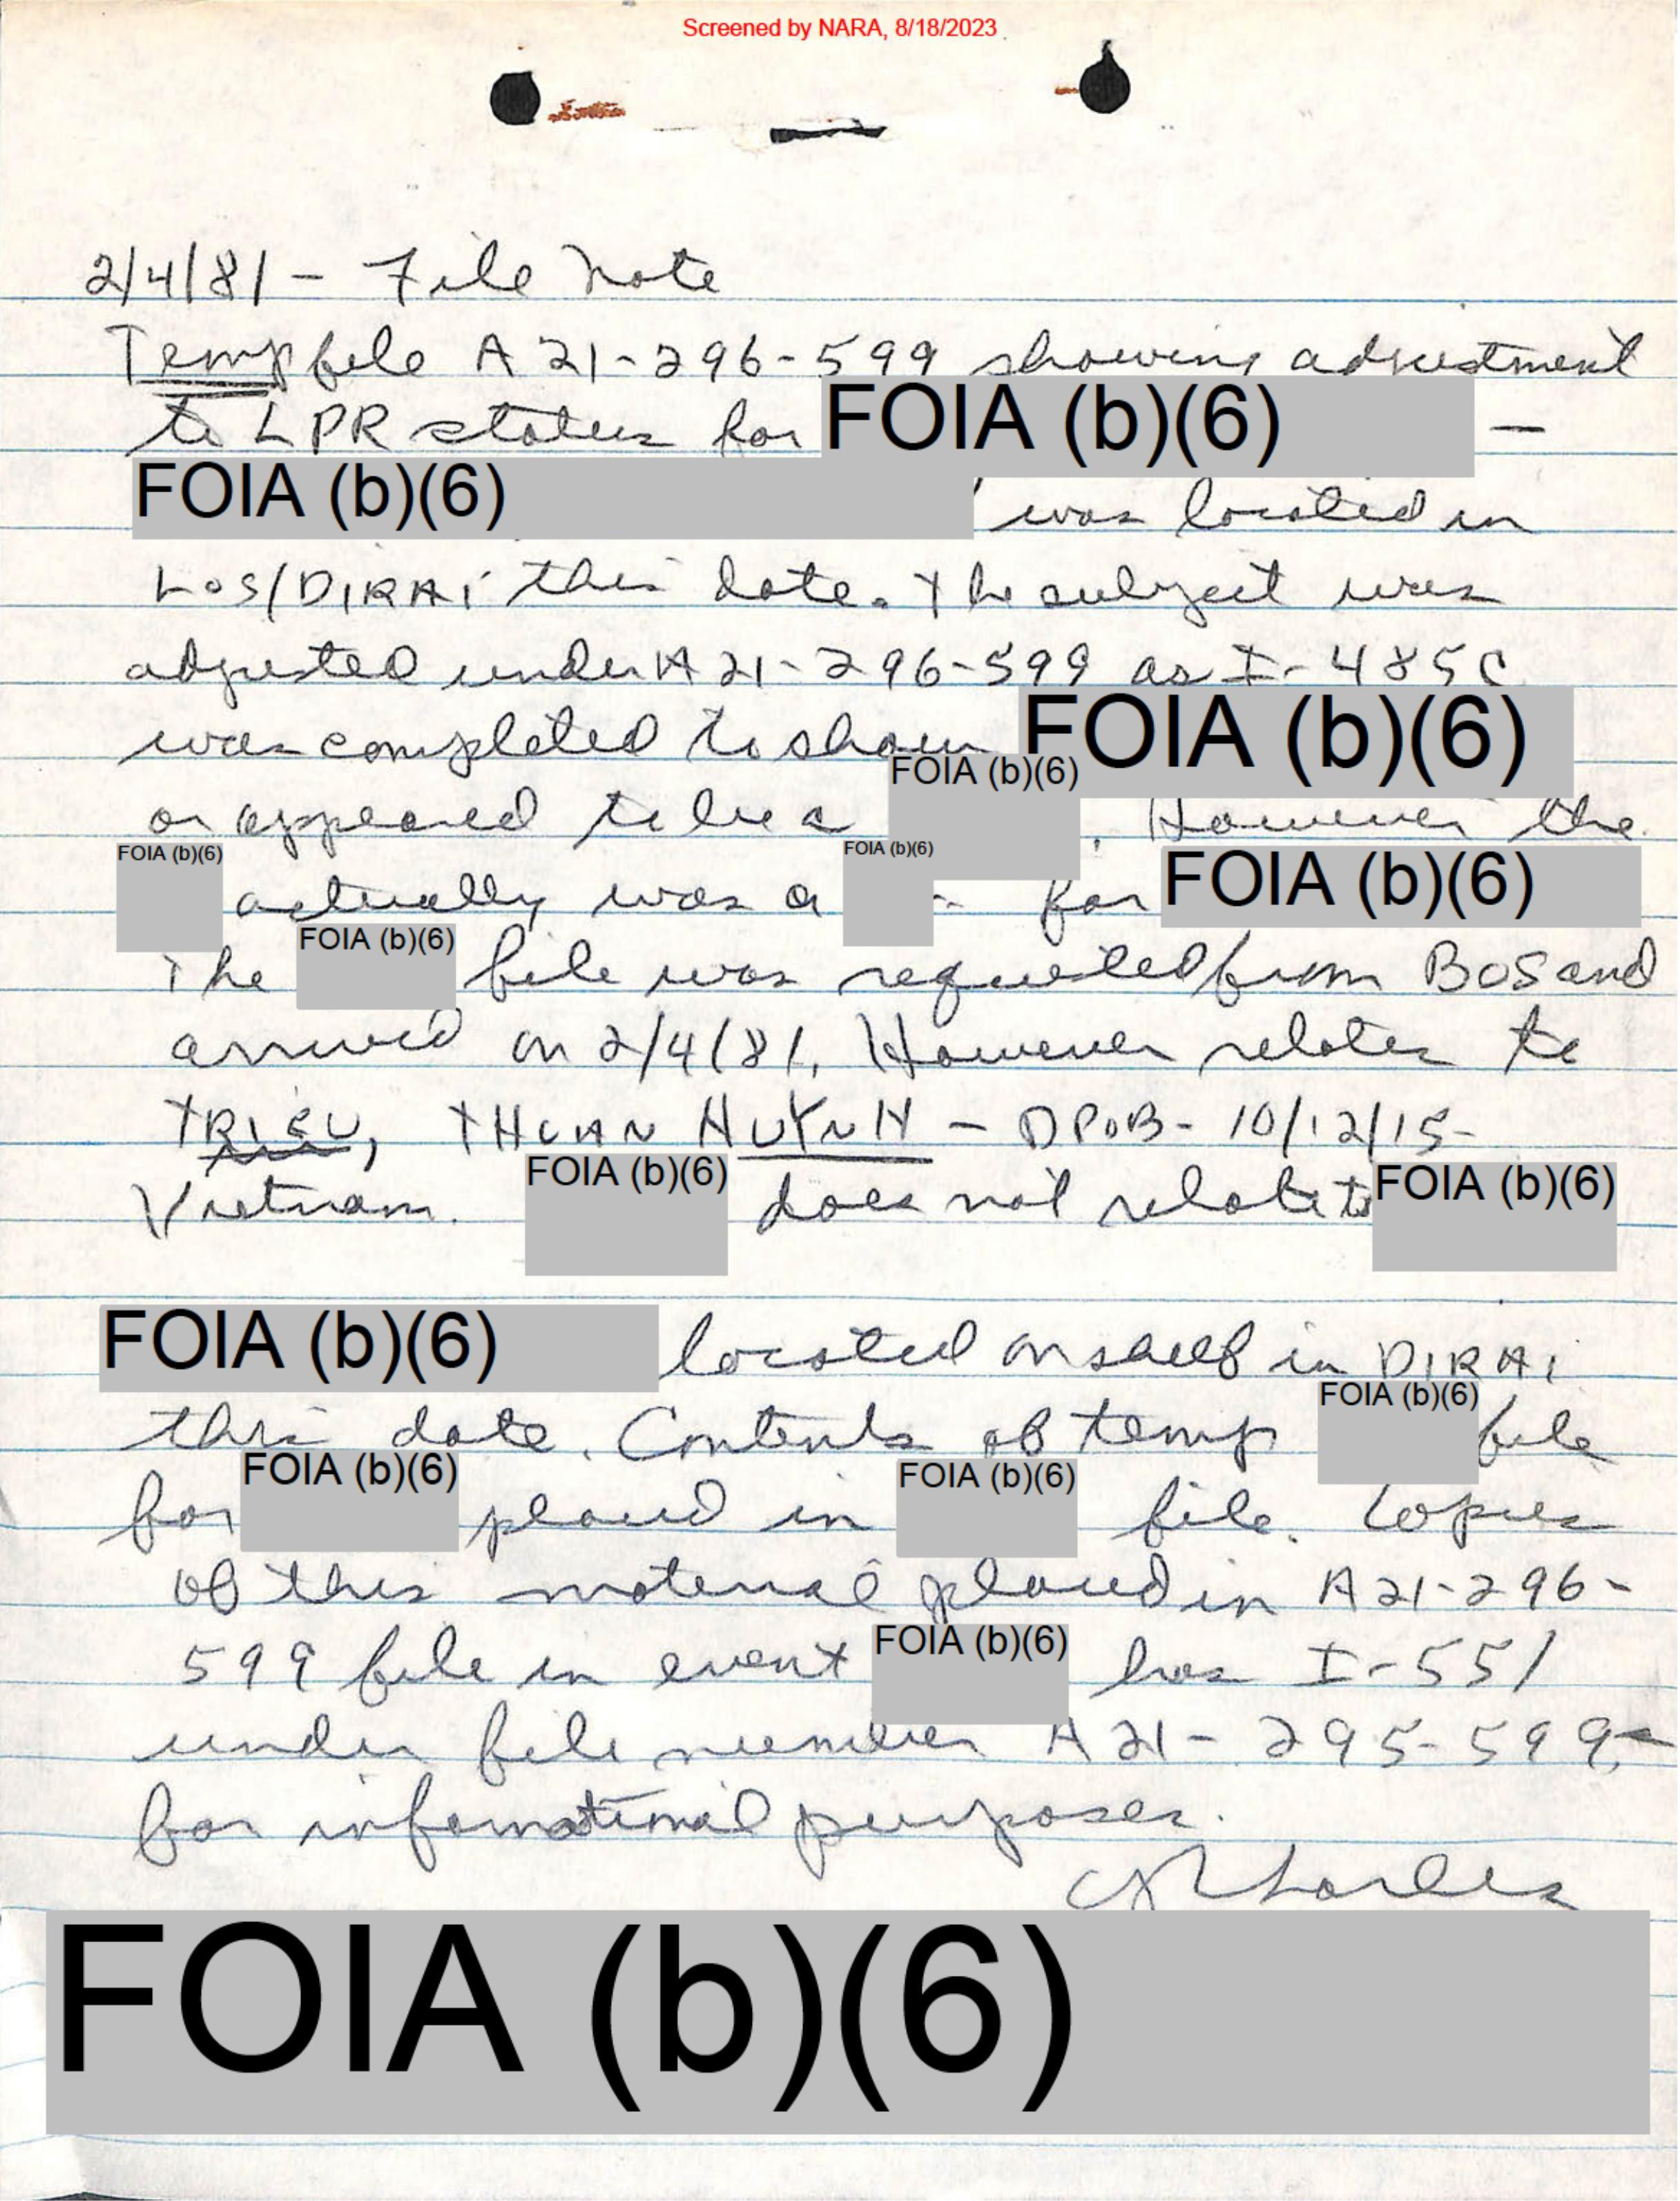 Screened by NARA, 8/18/2023
2/4/81 - File Note
Temp file A 21-296-599 showing adjustment
to LPR status for FOIA (b)(6) -
FOIA (b)(6) was located in
LOS/DIRAI this date. The subject was
adjusted under A 21-296-599 as I-485C
was completed to show FOIA (b)(6)
or appeared to be a FOIA (b)(6). However the
FOIA (b)(6) actually was a FOIA (b)(6) for FOIA (b)(6)
The FOIA (b)(6) file was requested from BOS and
arrived on 2/4/81. However relates to
TRIEU, THUAN HUYNH - DPOB - 10/12/15-
Vietnam. FOIA (b)(6) does not relate to FOIA (b)(6)
FOIA (b)(6) located on shelf in DIRAI
this date. Contents of temp FOIA (b)(6) file
for FOIA (b)(6) placed in FOIA (b)(6) file. Copies
of this material placed in A 21-296-
599 file in event FOIA (b)(6) has I-551
under file number A 21-295-599-
for informational purposes.
FOIA (b)(6)